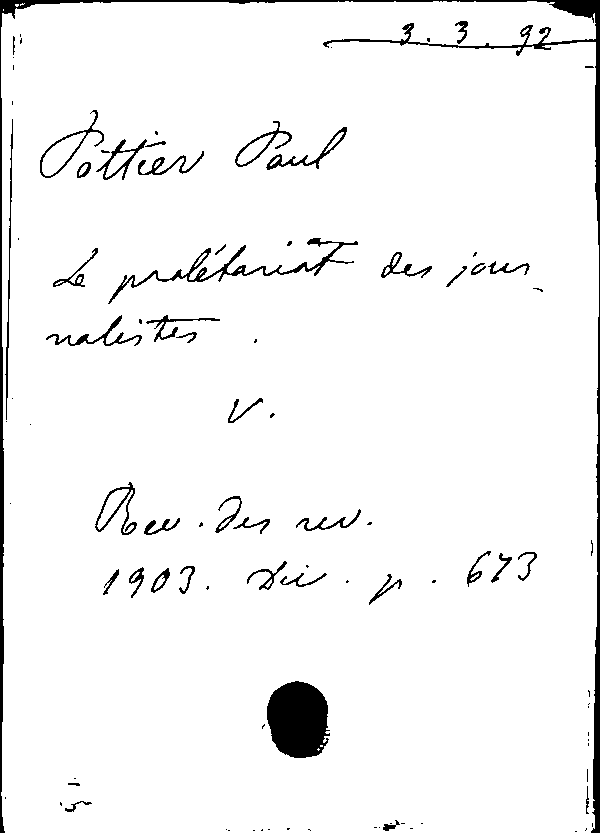 3.3.92
Pottier Paul
Le prolétariat des jour-
nalistes.
V.
Rev. des rev.
1903. p. 673